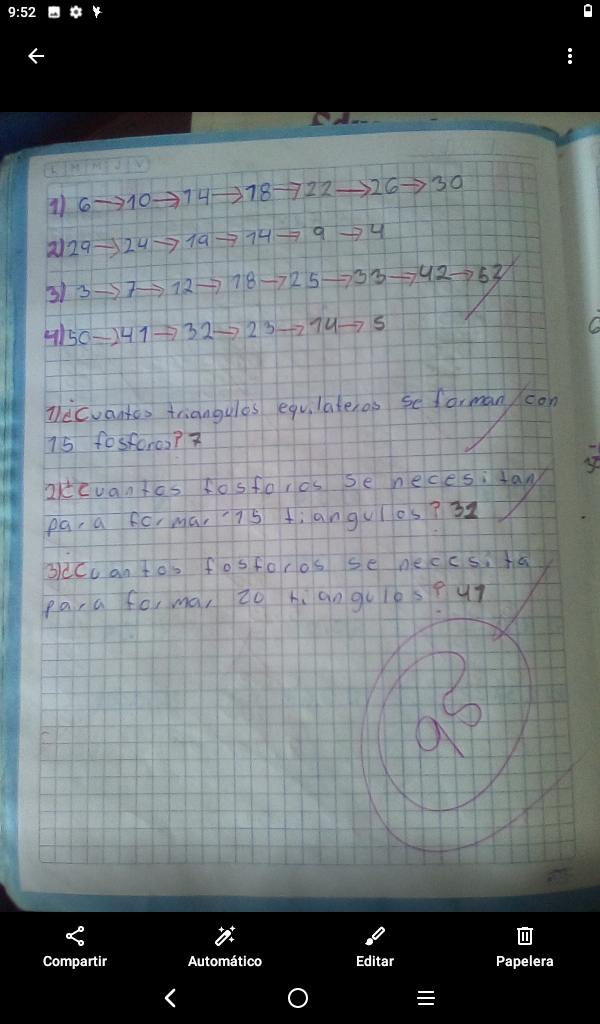 9:52
L M M J V
1) 6→10→14→18→22→26→30
2) 29→24→19→14→9→4
3) 3→7→12→18→25→33→42→52
4) 50→41→32→23→14→5
1) ¿Cuantos triangulos equilateros se forman con
15 fosforos? 7
2) ¿Cuantos fosforos se necesitan
para formar 15 tiangulos? 31
3) ¿Cuantos fosforos se necesita
para formar 20 tiangulos? 41
95
Compartir
Automático
Editar
Papelera